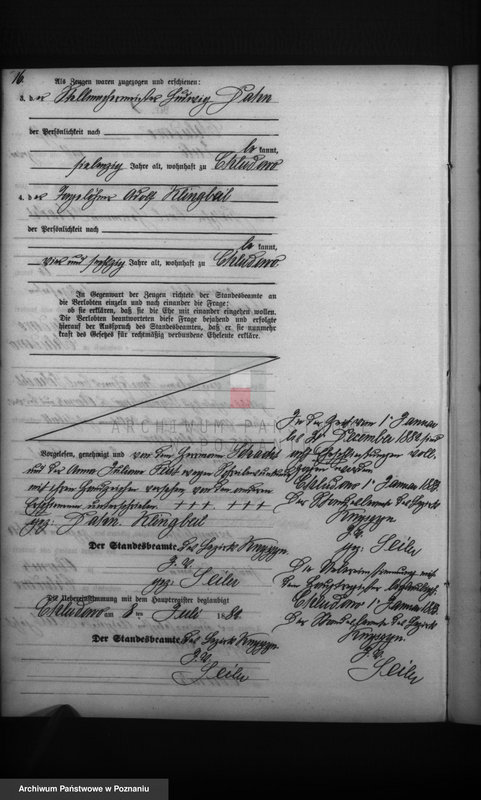 16.
Als Zeugen waren zugezogen und erschienen:
3. der Stellmachermeister Ludwig Dahn
der Persönlichkeit nach
be kannt,
siebenzig Jahre alt, wohnhaft zu Chludowo
4. der Tagelöhner Adolf Klingbeil
der Persönlichkeit nach
be kannt,
vier und sechszig Jahre alt, wohnhaft zu Chludowo
In Gegenwart der Zeugen richtete der Standesbeamte an
die Verlobten einzeln und nach einander die Frage:
ob sie erklären, daß sie die Ehe mit einander eingehen wollen.
Die Verlobten beantworteten diese Frage bejahend und erfolgte
hierauf der Ausspruch des Standesbeamten, daß er sie nunmehr
kraft des Gesetzes für rechtmäßig verbundene Eheleute erkläre.
ARCHIWUM PA
POZNA
Vorgelesen, genehmigt und von dem Hermann
und der Anna Juliane wegen
mit ihren Handzeichen versehen von den anderen
Erschienenen unterschrieben +++ +++
gez: Dahn. Klingbeil
Der Standesbeamte des Bezirks
J. V.
gez: Seiler
Die Uebereinstimmung mit dem Hauptregister beglaubigt
Chludowo am 8 ten Juli 1882.
Der Standesbeamte des Bezirks
J. V.
Seiler
In der Zeit vom 1t Januar
bis December 1882 sind
Eheschließungen voll-
zogen worden
Chludowo 1t Januar 1883
Der Standesbeamte des Bezirks
J. V.
gez: Seiler
Die Uebereinstimmung mit
dem Hauptregister beglaubigt.
Chludowo 1t Januar 1883
Der Standesbeamte des Bezirks
J. V.
Seiler
Archiwum Państwowe w Poznaniu